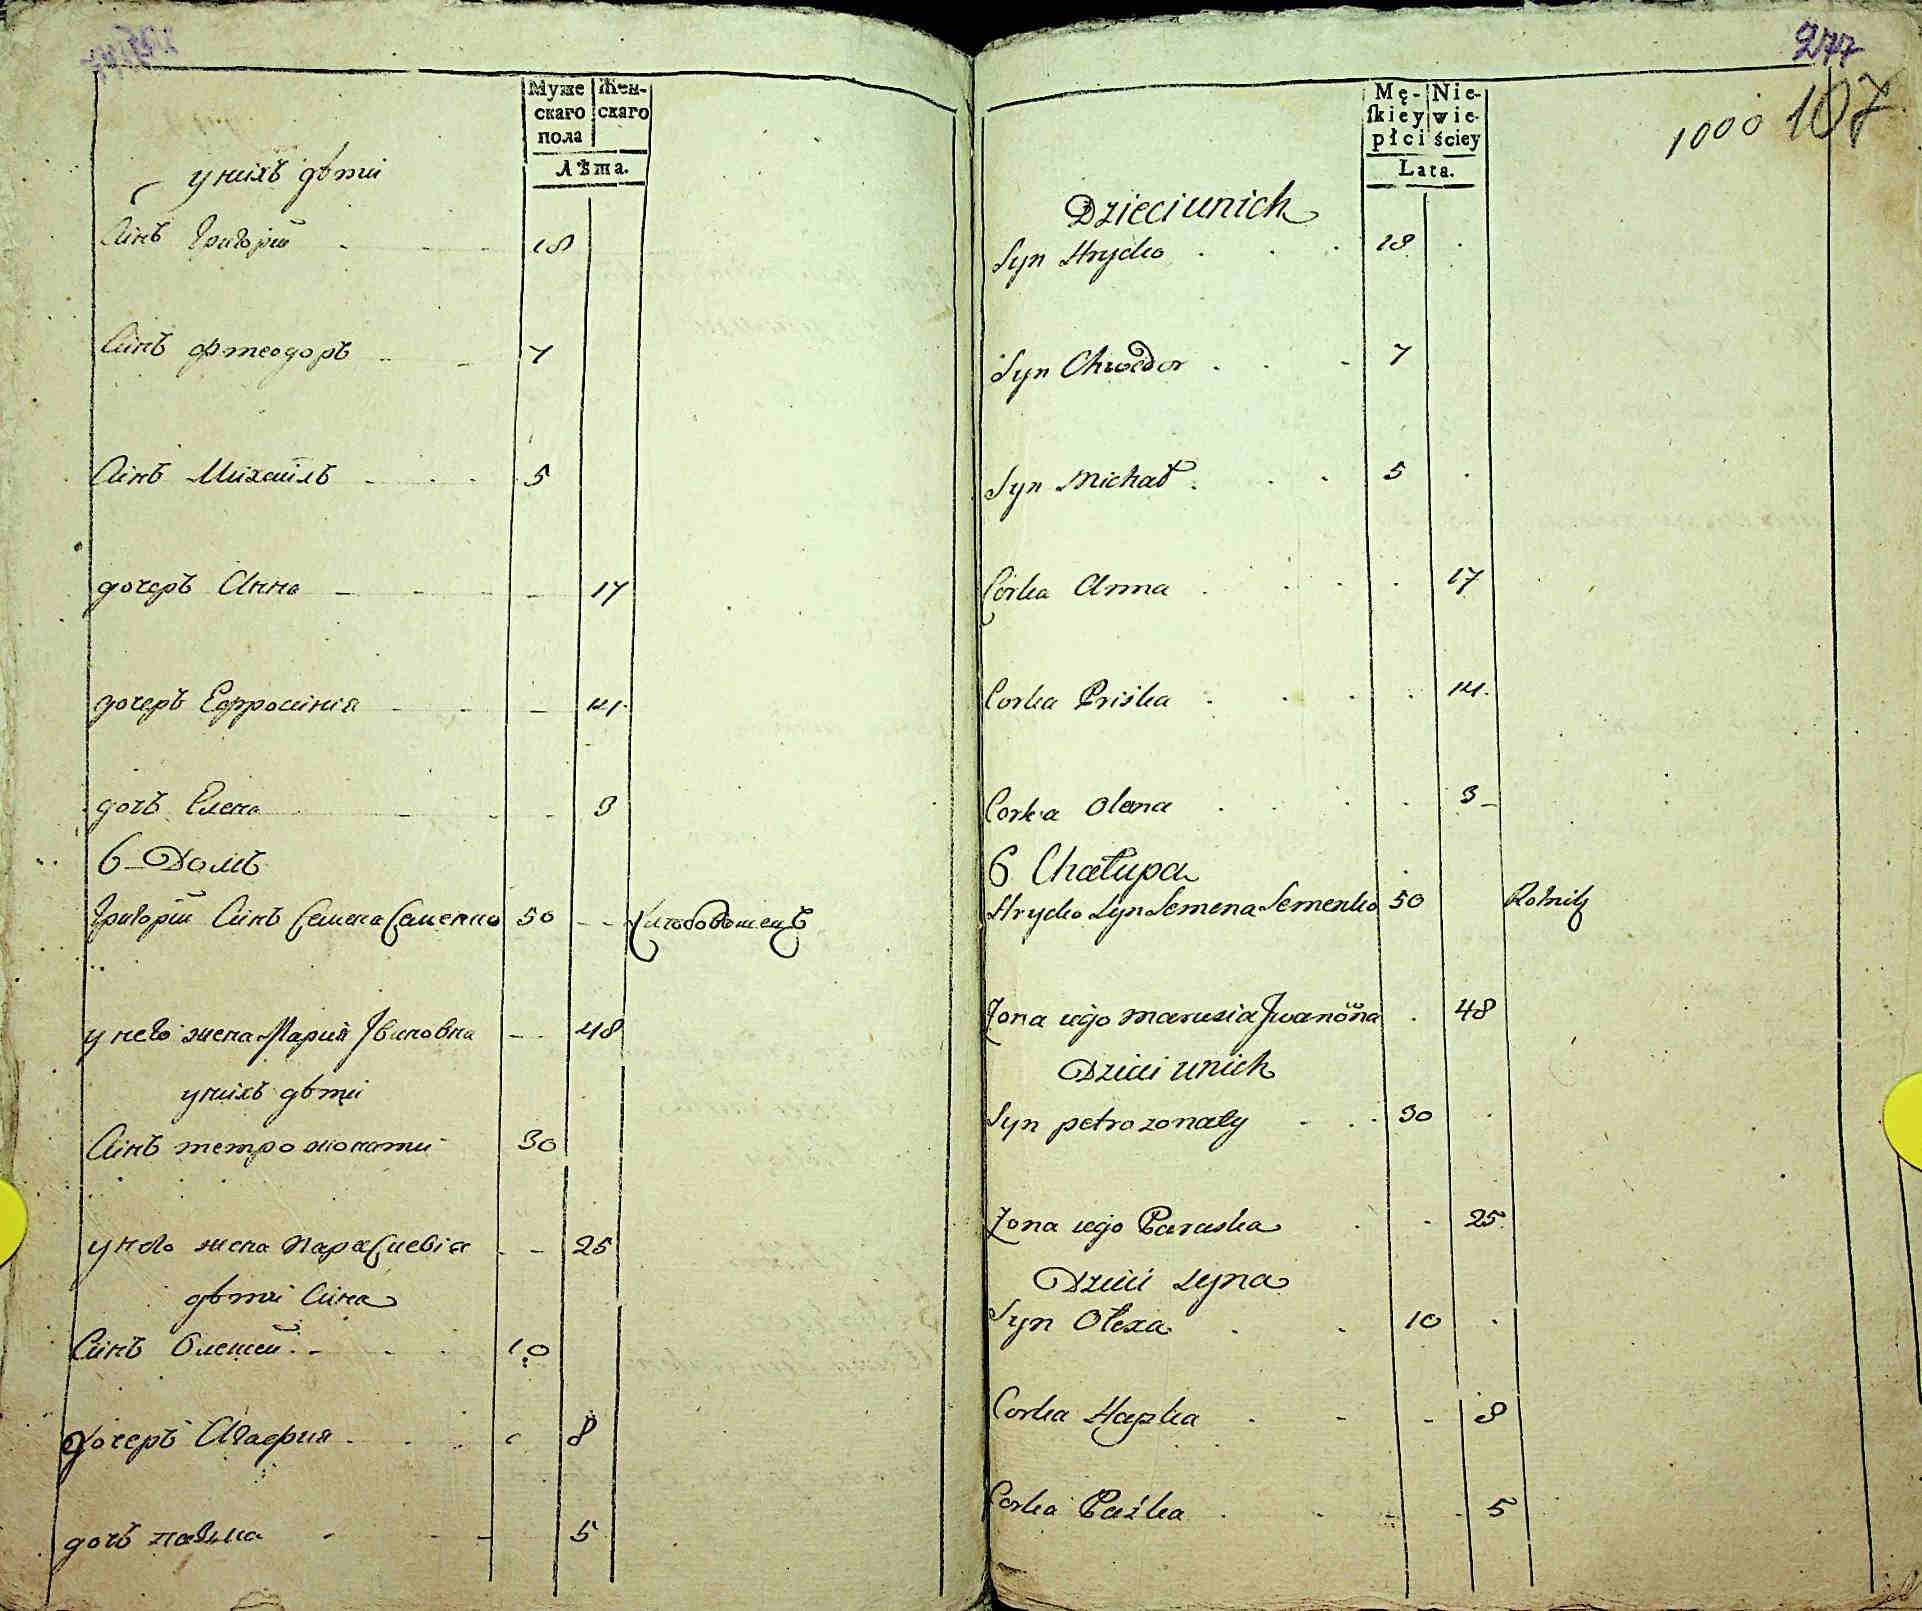 Муже Жен-
скаго скаго
пола
Лѣта.
у нихъ дѣти
Синъ Григорій 18
Синъ Фтеодоръ 7
Синъ Михаилъ 5
дочеръ Анна 17
дочеръ Ефросинія 14
дочъ Елена 3
6 Домъ
Григорій Синъ Семена Семенко 50 Хлѣбопашецъ
у него жена Марія Ивановна 48
у нихъ дѣти
Синъ петро жонатий 30
у него жена Парасĸевія 25
дѣти Сина
Синъ Олексей 10
дочеръ Агафия 8
дочъ 5
277
1000 107
Mę- Nie-
ſkiey wie-
płci ściey
Lata.
Dzieci unich
Syn Hrycko 18
Syn Chwedor 7
Syn Michał 5
Corka Anna 17
Corka Priśka 14
Corka Olena 3
6 Chałupa
Hrycko Syn Semena Semenko 50 Rolnik
Żona iego Marusia Jwanowna 48
Dzieci unich
Syn petro żonaty 30
Żona iego Paraska 25
Dzieci Syna
Syn Ołexa 10
Corka Hapka 8
Corka Paźka 5